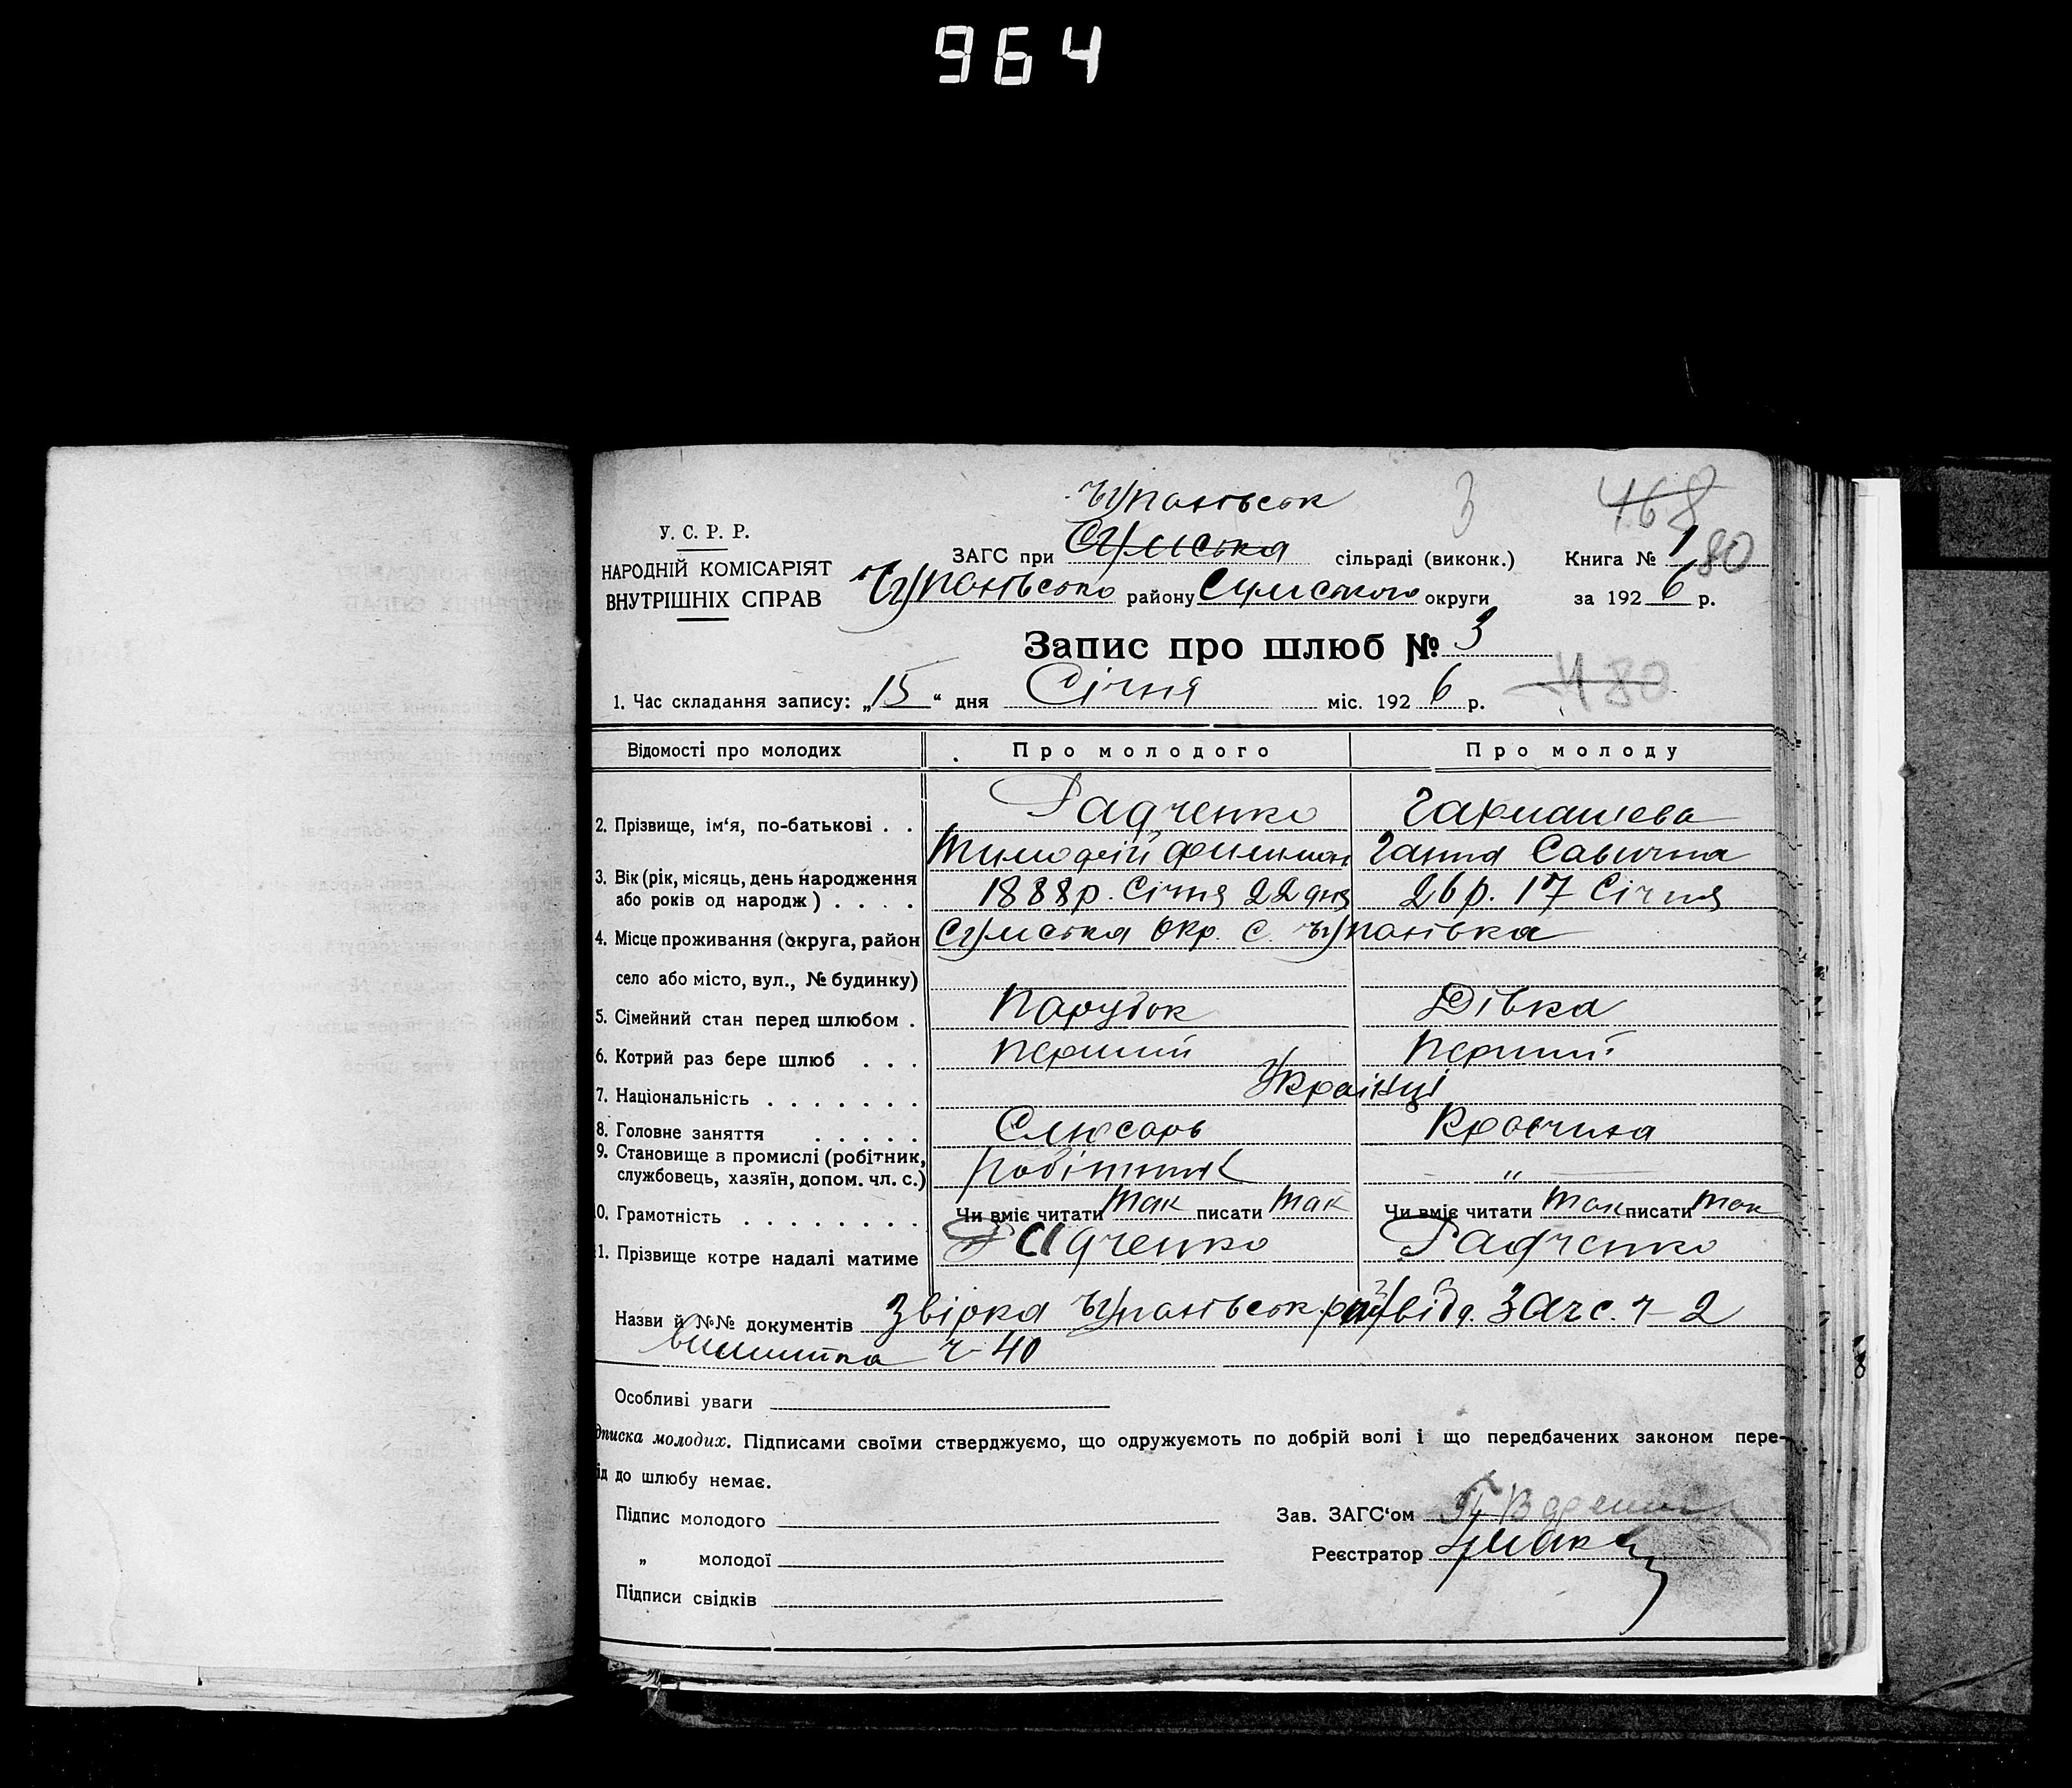 964
Чупахівськ 3 468
У. С. Р. Р.
НАРОДНІЙ КОМІСАРІЯТ
ВНУТРІШНІХ СПРАВ
ЗАГС при Сумська сільраді (виконк.) Книга № 1 80
району Сумського округи за 1926 р.
Запис про шлюб № 3
1. Час складання запису: „15“ дня Січня міс. 1926 р. 480
Відомості про молодих Про молодого Про молоду
2. Прізвище, ім‘я, по-батькові . . Радченко Гармашева
Тимофій Филимон Ганна Савична
3. Вік (рік, місяць, день народження
або років од народж) . . . . 1888р. Січня 22 дня 26р. 17 Січня
4. Місце проживання (округа, район Сумська окр. с. Чупахівка
село або місто, вул., № будинку)
5. Сімейний стан перед шлюбом . Парубок Дівка
6. Котрий раз бере шлюб . . . перший перший
7. Національність . . . . . . . Українці
8. Головне заняття . . . . . Слюсарь Кравчиха
9. Становище в промислі (робітник,
службовець, хазяїн, допом. чл. с.) робітник „
0. Грамотність . . . . . . . . Чи вміє читати так писати так Чи вміє читати так писати так
1. Прізвище котре надалі матиме Радченко Радченко
Назви й №№ документів відд. Загс. ч- 2
ч- 40
Особливі уваги
дписка молодих. Підписами своїми стверджуємо, що одружуємоть по добрій волі і що передбачених законом пере-
ід до шлюбу немає.
Підпис молодого Зав. ЗАГС‘ом
„ молодої Реєстратор
Підписи свідків